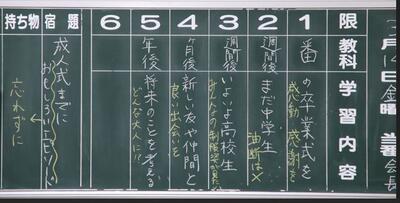 月14日 金曜
会長
限 教科 学習内容
1 番 の卒業式を
感動 感謝を
2 週間後 まだ中学生
油断は×
3 週間後 いよいよ高校生
みんなの制服姿が
4 ヶ月後 新しい友や仲間と
良い出会いを
5 年後 将来のことを考える
どんな大人に!!
6
宿題 成人式までに
おもしろいエピソード
持ち物 忘れずに